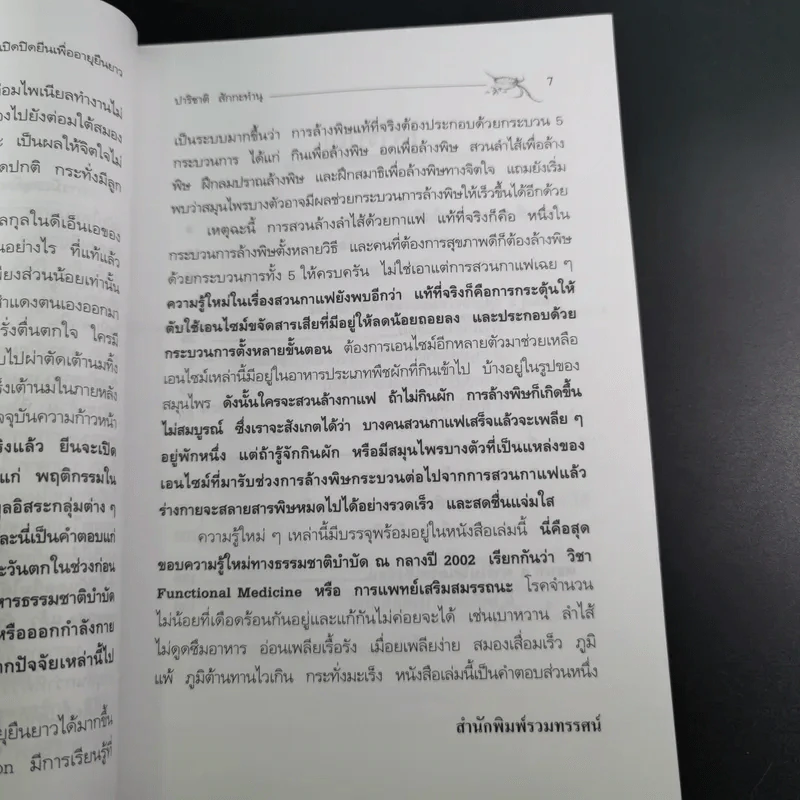 เปิดปิดยีนเพื่ออายุยืนยาว
อมไพเนียลทำงานไม่
องไปยังต่อมใต้สมอง
เป็นผลให้จิตใจไม่
ดปกติ กระทั่งมีลูก
ลกุลในดีเอ็นเอของ
นอย่างไร ที่แท้แล้ว
พียงส่วนน้อยเท่านั้น
สำแดงตนเองออกมา
รั่งตื่นตกใจ ใครมี
บไปผ่าตัดเต้านมทิ้ง
ร็งเต้านมในภายหลัง
จจุบันความก้าวหน้า
ริงแล้ว ยีนจะเปิด
แก่ พฤติกรรมใน
มูลอิสระกลุ่มต่าง ๆ
ละนี่เป็นคำตอบแก่
ะวันตกในช่วงก่อน
หารธรรมชาติบำบัด
หรือออกกำลังกาย
ากปัจจัยเหล่านี้ไป
ยุยืนยาวได้มากขึ้น
on มีการเรียนรู้ที่
ปาริชาติ สักกะทำนุ
7
เป็นระบบมากขึ้นว่า การล้างพิษแท้ที่จริงต้องประกอบด้วยกระบวน 5
กระบวนการ ได้แก่ กินเพื่อล้างพิษ อดเพื่อล้างพิษ สวนลำไส้เพื่อล้าง
พิษ ฝึกลมปราณล้างพิษ และฝึกสมาธิเพื่อล้างพิษทางจิตใจ แถมยังเริ่ม
พบว่าสมุนไพรบางตัวอาจมีผลช่วยกระบวนการล้างพิษให้เร็วขึ้นได้อีกด้วย
เหตุฉะนี้ การสวนล้างลำไส้ด้วยกาแฟ แท้ที่จริงก็คือ หนึ่งใน
กระบวนการล้างพิษตั้งหลายวิธี และคนที่ต้องการสุขภาพดีก็ต้องล้างพิษ
ด้วยกระบวนการทั้ง 5 ให้ครบครัน ไม่ใช่เอาแต่การสวนกาแฟเฉย ๆ
ความรู้ใหม่ในเรื่องสวนกาแฟยังพบอีกว่า แท้ที่จริงก็คือการกระตุ้นให้
ตับใช้เอนไซม์ขจัดสารเสียที่มีอยู่ให้ลดน้อยถอยลง และประกอบด้วย
กระบวนการตั้งหลายขั้นตอน ต้องการเอนไซม์อีกหลายตัวมาช่วยเหลือ
เอนไซม์เหล่านี้มีอยู่ในอาหารประเภทพืชผักที่กินเข้าไป บ้างอยู่ในรูปของ
สมุนไพร ดังนั้นใครจะสวนล้างกาแฟ ถ้าไม่กินผัก การล้างพิษก็เกิดขึ้น
ไม่สมบูรณ์ ซึ่งเราจะสังเกตได้ว่า บางคนสวนกาแฟเสร็จแล้วจะเพลีย ๆ
อยู่พักหนึ่ง แต่ถ้ารู้จักกินผัก หรือมีสมุนไพรบางตัวที่เป็นแหล่งของ
เอนไซม์ที่มารับช่วงการล้างพิษกระบวนต่อไปจากการสวนกาแฟแล้ว
ร่างกายจะสลายสารพิษหมดไปได้อย่างรวดเร็ว และสดชื่นแจ่มใส
ความรู้ใหม่ ๆ เหล่านี้มีบรรจุพร้อมอยู่ในหนังสือเล่มนี้ นี่คือสุด
ขอบความรู้ใหม่ทางธรรมชาติบำบัด ณ กลางปี 2002 เรียกกันว่า วิชา
Functional Medicine หรือ การแพทย์เสริมสมรรถนะ โรคจำนวน
ไม่น้อยที่เดือดร้อนกันอยู่และแก้กันไม่ค่อยจะได้ เช่นเบาหวาน ลำไส้
ไม่ดูดซึมอาหาร อ่อนเพลียเรื้อรัง เมื่อยเพลียง่าย สมองเสื่อมเร็ว ภูมิ
แพ้ ภูมิต้านทานไวเกิน กระทั่งมะเร็ง หนังสือเล่มนี้เป็นคำตอบส่วนหนึ่ง
สำนักพิมพ์รวมทรรศน์